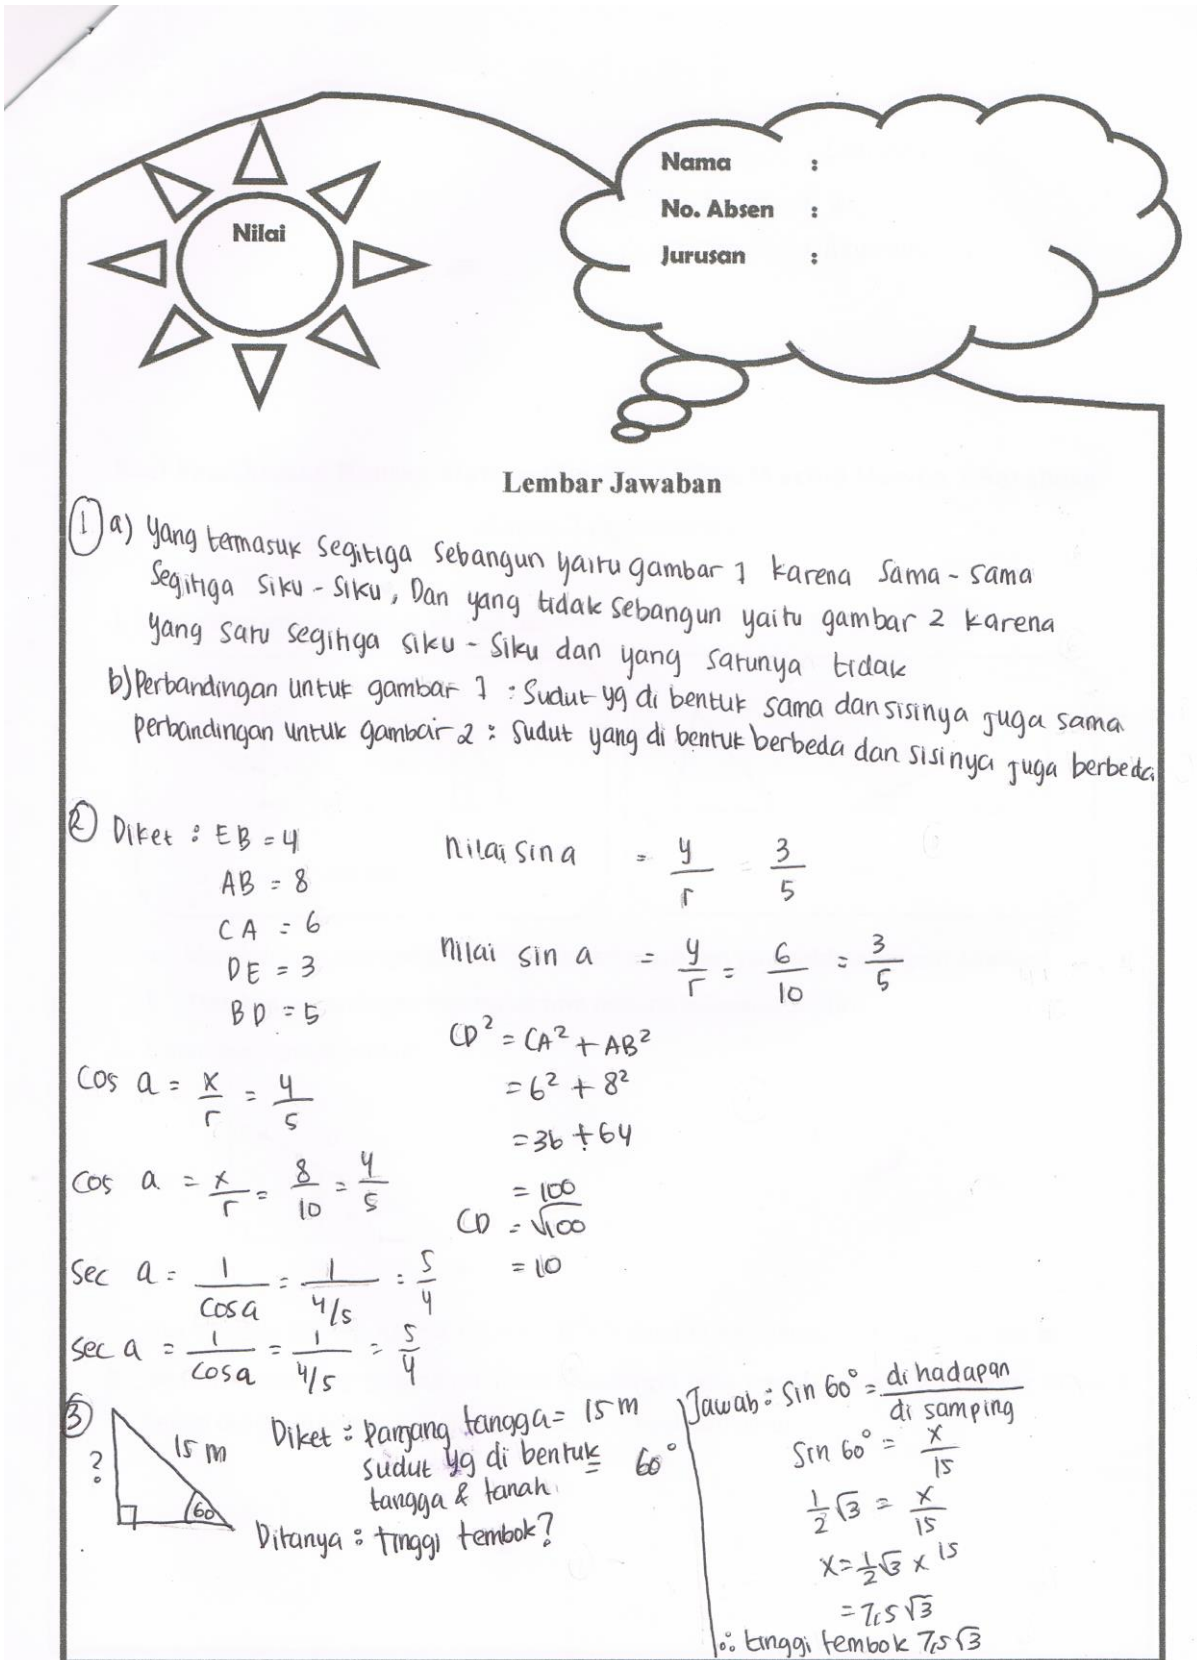 Nilai
Nama :
No. Absen :
Jurusan :
Lembar Jawaban
1 a) yang termasuk segitiga sebangun yaitu gambar 1 karena sama-sama
segitiga siku-siku, Dan yang tidak sebangun yaitu gambar 2 karena
yang satu segitiga siku-siku dan yang satunya tidak
b) Perbandingan untuk gambar 1 : Sudut yg di bentuk sama dan sisinya juga sama
perbandingan untuk gambar 2 : Sudut yang di bentuk berbeda dan sisinya juga berbeda
2 Diket : EB = 4
AB = 8
CA = 6
DE = 3
BD = 5
Nilai sin a = y/r = 3/5
Nilai sin a = y/r = 6/10 = 3/5
CD² = CA² + AB²
= 6² + 8²
= 36 + 64
= 100
CD = √100
= 10
Cos a = x/r = 4/5
Cos a = x/r = 8/10 = 4/5
Sec a = 1/cos a = 1/4/5 = 5/4
Sec a = 1/cos a = 1/4/5 = 5/4
3
?
15 m
60
Diket : Panjang tangga = 15 m
sudut yg di bentuk = 60°
tangga & tanah
Ditanya : tinggi tembok?
Jawab : Sin 60° = di hadapan/di samping
Sin 60° = x/15
1/2 √3 = x/15
x = 1/2 √3 x 15
= 7,5 √3
∴ tinggi tembok 7,5 √3